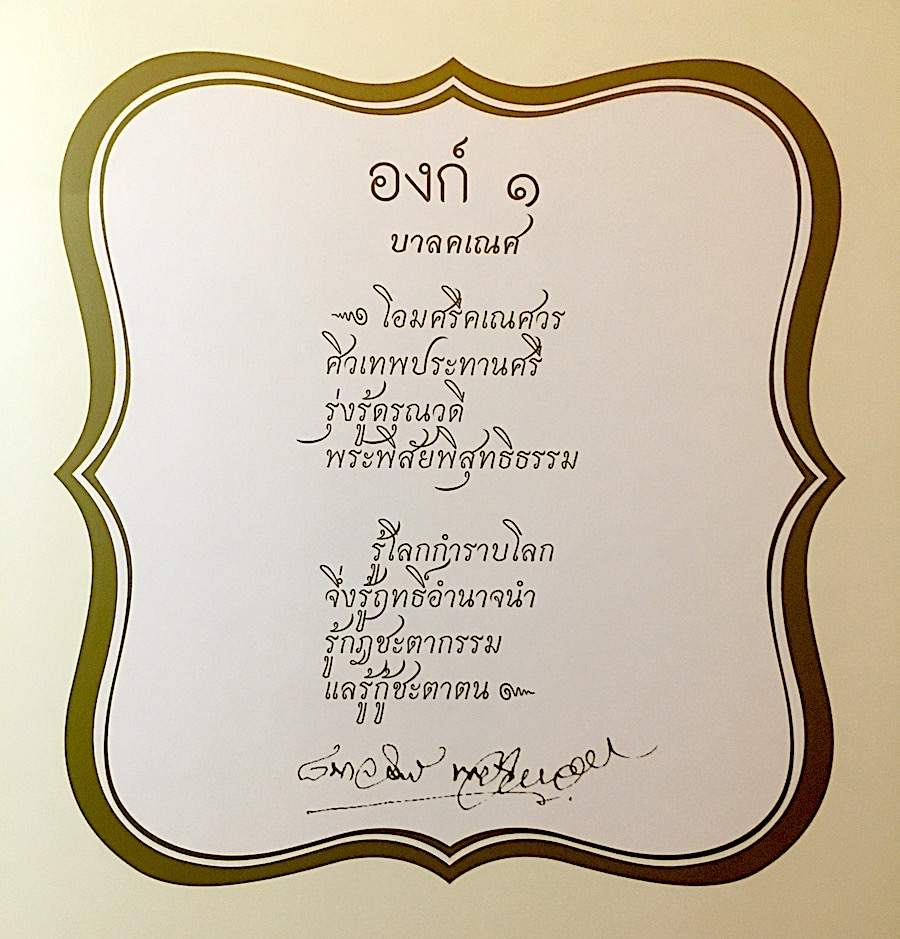 องก์ ๑
บาลคเณศ
๏ โอมศรีคเณศวร
ศิวเทพประทานศรี
รุ่งรู้ดรุณวดี
พระพิสัยพิสุทธิธรรม
รู้โลกกำราบโลก
จึ่งรู้ฤทธิ์อำนาจนำ
รู้กฎชะตากรรม
แลรู้กู้ชะตาตน ๛